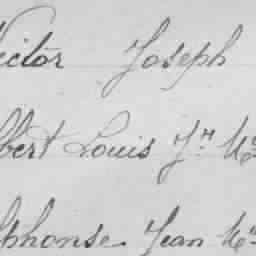 Victor Joseph
lbert Louis Jh
lphonse Jean